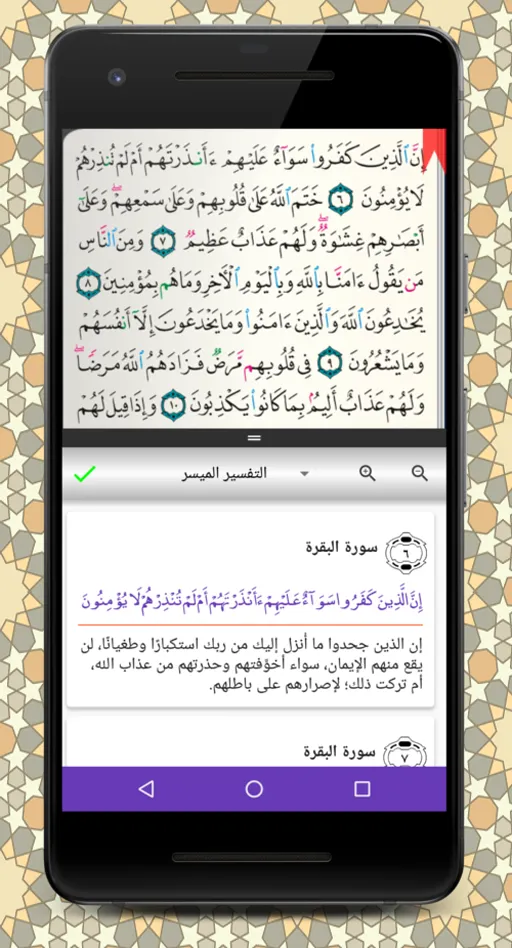 إِنَّ ٱلَّذِينَ كَفَرُوا۟ سَوَآءٌ عَلَيْهِمْ ءَأَنذَرْتَهُمْ أَمْ لَمْ تُنذِرْهُمْ
لَا يُؤْمِنُونَ ٦ خَتَمَ ٱللَّهُ عَلَىٰ قُلُوبِهِمْ وَعَلَىٰ سَمْعِهِمْ ۖ وَعَلَىٰٓ
أَبْصَـٰرِهِمْ غِشَـٰوَةٌ ۖ وَلَهُمْ عَذَابٌ عَظِيمٌ ٧ وَمِنَ ٱلنَّاسِ
مَن يَقُولُ ءَامَنَّا بِٱللَّهِ وَبِٱلْيَوْمِ ٱلْـَٔاخِرِ وَمَا هُم بِمُؤْمِنِينَ ٨
يُخَـٰدِعُونَ ٱللَّهَ وَٱلَّذِينَ ءَامَنُوا۟ وَمَا يَخْدَعُونَ إِلَّآ أَنفُسَهُمْ
وَمَا يَشْعُرُونَ ٩ فِى قُلُوبِهِم مَّرَضٌ فَزَادَهُمُ ٱللَّهُ مَرَضًا ۖ
وَلَهُمْ عَذَابٌ أَلِيمٌۢ بِمَا كَانُوا۟ يَكْذِبُونَ ١٠ وَإِذَا قِيلَ لَهُمْ
التفسير الميسر
سورة البقرة ٦
إِنَّ الَّذِينَ كَفَرُوا سَوَآءٌ عَلَيْهِمْ ءَأَنْذَرْتَهُمْ أَمْ لَمْ تُنْذِرْهُمْ لَا يُؤْمِنُونَ
إن الذين جحدوا ما أنزل إليك من ربك استكبارًا وطغيانًا، لن
يقع منهم الإيمان، سواء أخوَّفتهم وحذرتهم من عذاب الله،
أم تركت ذلك؛ لإصرارهم على باطلهم.
سورة البقرة ٧